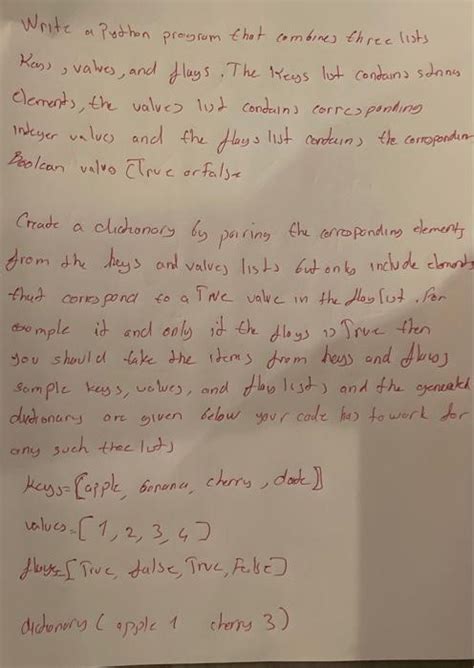 Write a Python program that combines three lists
Keys, values, and flags. The Keys list contains string
elements, the values list contains corresponding
integer values and the flags list contains the corresponding
Boolean values (True or false
Create a dictionary by pairing the corresponding elements
from the keys and values lists but only include elements
that correspond to a True value in the flag list. For
example if and only if the flags is True then
you should take the items from keys and flags
sample keys, values, and flag lists and the generated
dictionary are given below your code has to work for
any such three lists
keys=[apple, banana, cherry, date]
values=[1, 2, 3, 4)
flags=[True, false, True, False]
dictionary ( apple 1 cherry 3)